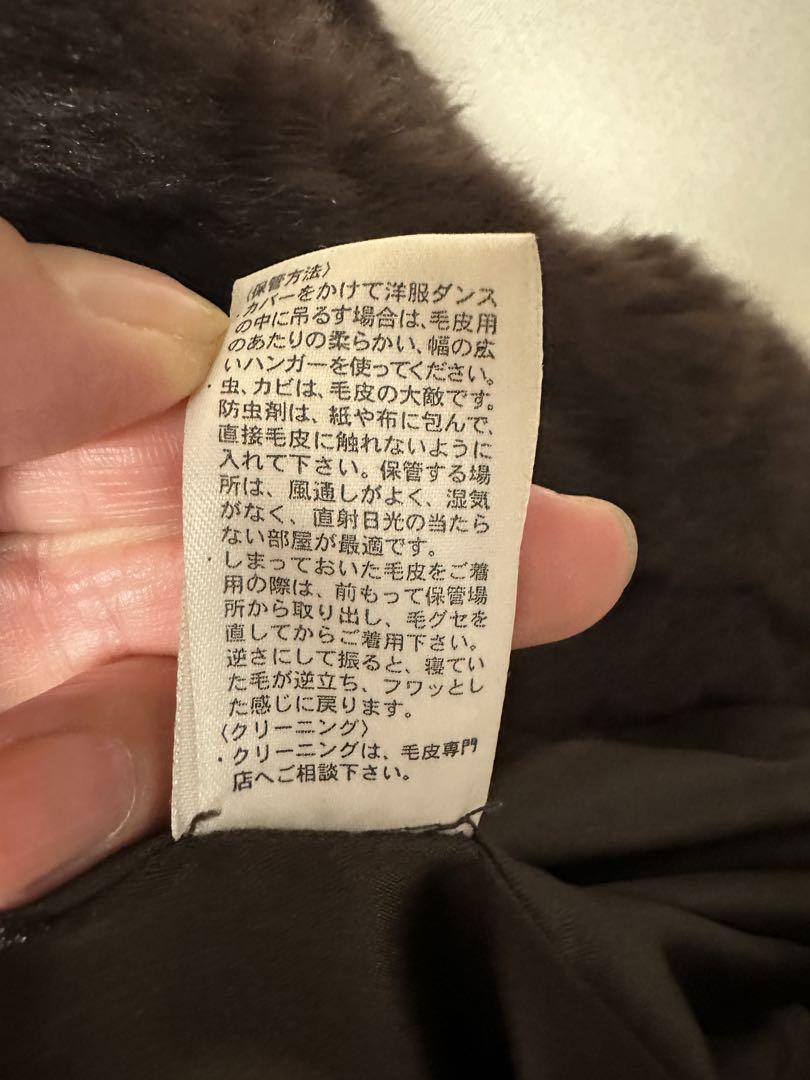 〈保管方法〉
・カバーをかけて洋服ダンス
の中に吊るす場合は、毛皮用
のあたりの柔らかい、幅の広
いハンガーを使ってください。
・虫、カビは、毛皮の大敵です。
防虫剤は、紙や布に包んで、
直接毛皮に触れないように
入れて下さい。保管する場
所は、風通しがよく、湿気
がなく、直射日光の当たら
ない部屋が最適です。
・しまっておいた毛皮をご着
用の際は、前もって保管場
所から取り出し、毛グセを
直してからご着用下さい。
逆さにして振ると、寝てい
た毛が逆立ち、フワッとし
た感じに戻ります。
〈クリーニング〉
・クリーニングは、毛皮専門
店へご相談下さい。